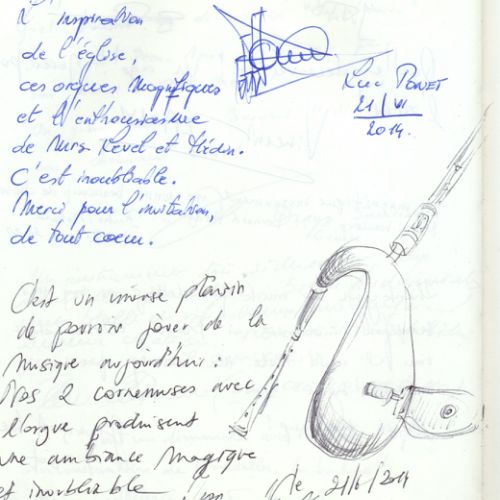 L'inspiration
de l'église,
ces orgues magnifiques
et l'enthousiasme
de Mrs Revel et Hédin.
C'est inoubliable.
Merci pour l'invitation,
de tout coeur.
Luc PONET
21/VI
2014.
C'est un immense plaisir
de pouvoir jouer de la
musique aujourd'hui.
Nos 2 cornemuses avec
l'orgue produisent
une ambiance magique
et inoubliable
le 21/6/2014